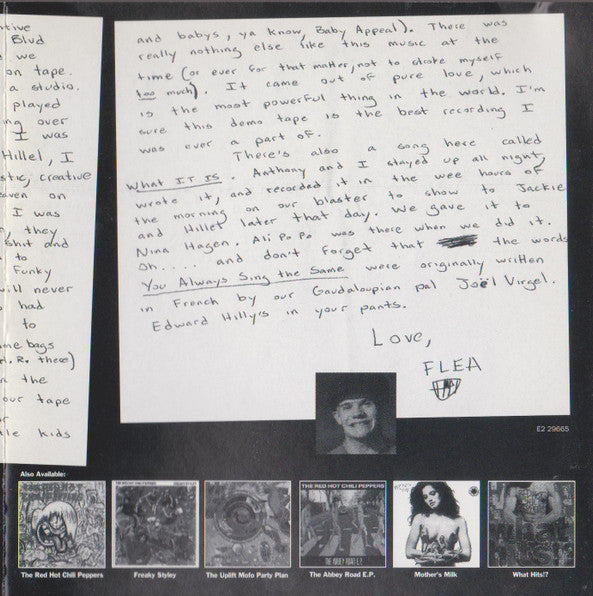 ntive
Blvd
we
on tape.
a studio.
played
ng over
I was
Hillel, I
stic, creative
eaven on
I was
they
shit and
to
Funky
will never
had
to
me bags
H. R. there)
n the
our tape
or
tle kids
and babys, ya know, Baby Appeal). There was
really nothing else like this music at the
time (or ever for that matter, not to stroke myself
too much). It came out of pure love, which
is the most powerful thing in the world. I'm
sure this demo tape is the best recording I
was ever a part of.
There's also a song here called
What IT IS. Anthony and I stayed up all night,
wrote it, and recorded it in the wee hours of
the morning on our blaster to show to Jackie
and Hillel later that day. We gave it to
Nina Hagen. Ali Po Po was there when we did it.
Oh..... and don't forget that the words
You Always Sing the Same were originally written
in French by our Gaudaloupian pal Joël Virgel.
Edward Hilly's in your pants.
Love,
FLEA
E2 29665
Also Available:
THE RED HOT CHILI PEPPERS
THE ABBEY ROAD E.P.
The Red Hot Chili Peppers
Freaky Styley
The Uplift Mofo Party Plan
The Abbey Road E.P.
Mother's Milk
What Hits!?